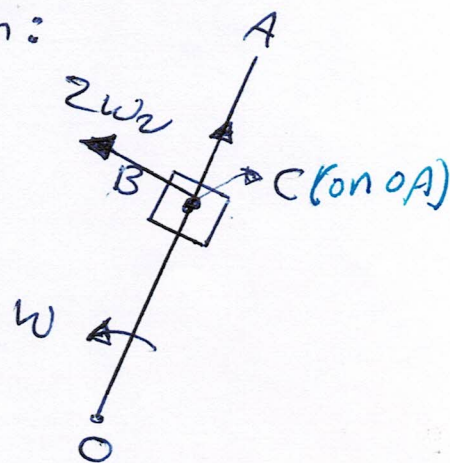 n:
A
2ωv
B
C (on OA)
ω
O